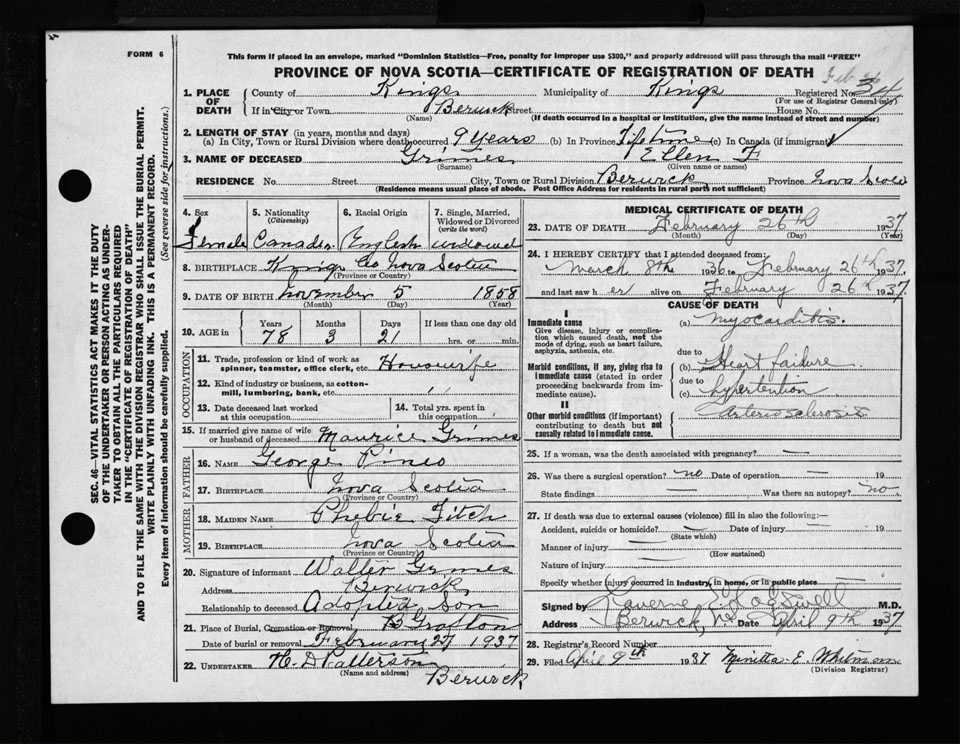 FORM 6
This form if placed in an envelope, marked "Dominion Statistics—Free, penalty for improper use $300," and properly addressed will pass through the mail "FREE"
PROVINCE OF NOVA SCOTIA—CERTIFICATE OF REGISTRATION OF DEATH
Feb 4
SEC. 46—VITAL STATISTICS ACT MAKES IT THE DUTY
OF THE UNDERTAKER OR PERSON ACTING AS UNDER-
TAKER TO OBTAIN ALL THE PARTICULARS REQUIRED
IN THE "CERTIFICATE OF REGISTRATION OF DEATH"
AND TO FILE THE SAME WITH THE DIVISION REGISTRAR WHO SHALL ISSUE THE BURIAL PERMIT.
WRITE PLAINLY WITH UNFADING INK. THIS IS A PERMANENT RECORD.
Every item of information should be carefully supplied. (See reverse side for instructions.)
1. PLACE OF DEATH
County of Kings Municipality of Kings Registered No. 34
(For use of Registrar General only)
If in City or Town Berwick Street House No.
(Name) (If death occurred in a hospital or institution, give the name instead of street and number)
2. LENGTH OF STAY (in years, months and days)
(a) In City, Town or Rural Division where death occurred 9 years (b) In Province Lifetime (c) In Canada (if immigrant)
3. NAME OF DECEASED Grimes Ellen F
(Surname) (Given name or names)
RESIDENCE No. Street City, Town or Rural Division Berwick Province Nova Scotia
(Residence means usual place of abode. Post Office Address for residents in rural parts not sufficient)
4. Sex Female
5. Nationality (Citizenship) Canadian
6. Racial Origin English
7. Single, Married, Widowed or Divorced (write the word) widowed
8. BIRTHPLACE Kings Co Nova Scotia
(Province or Country)
9. DATE OF BIRTH November 5 1858
(Month) (Day) (Year)
10. AGE in Years 78 Months 3 Days 21 If less than one day old hrs. or min.
OCCUPATION
11. Trade, profession or kind of work as spinner, teamster, office clerk, etc. Housewife
12. Kind of industry or business, as cotton-mill, lumbering, bank, etc. " "
13. Date deceased last worked at this occupation
14. Total yrs. spent in this occupation
15. If married give name of wife or husband of deceased Maurice Grimes
FATHER
16. NAME George Pineo
17. BIRTHPLACE Nova Scotia
(Province or Country)
MOTHER
18. MAIDEN NAME Phebie Fitch
19. BIRTHPLACE Nova Scotia
(Province or Country)
20. Signature of informant Walter Grimes
Address Berwick
Relationship to deceased Adopted Son
21. Place of Burial, Cremation or Removal B Grafton
Date of burial or removal February 27 1937
22. UNDERTAKER H. D Patterson
(Name and address) Berwick
MEDICAL CERTIFICATE OF DEATH
23. DATE OF DEATH February 26th 1937
(Month) (Day) (Year)
24. I HEREBY CERTIFY that I attended deceased from:
March 8th 1936 to February 26th 1937.
and last saw her alive on February 26th 1937.
CAUSE OF DEATH
I
Immediate cause (a) Myocarditis.
Give disease, injury or complication, which caused death, not the mode of dying, such as heart failure, asphyxia, asthenia, etc.
due to
Morbid conditions, if any, giving rise to immediate cause (stated in order proceeding backwards from immediate cause).
(b) Heart failure
due to
(c) hypertention
II
Other morbid conditions (if important) contributing to death but not causally related to immediate cause.
arterio sclerosis
25. If a woman, was the death associated with pregnancy? —
26. Was there a surgical operation? no Date of operation — 19
State findings — Was there an autopsy? no.
27. If death was due to external causes (violence) fill in also the following:—
Accident, suicide or homicide? — Date of injury — 19
(State which)
Manner of injury —
(How sustained)
Nature of injury —
Specify whether injury occurred in industry, in home, or in public place
Signed by Laverne Cogswell M.D.
Address Berwick, NS Date April 9th 1937
28. Registrar's Record Number
29. Filed April 9th 1937 Minetta E. Whitman
(Division Registrar)